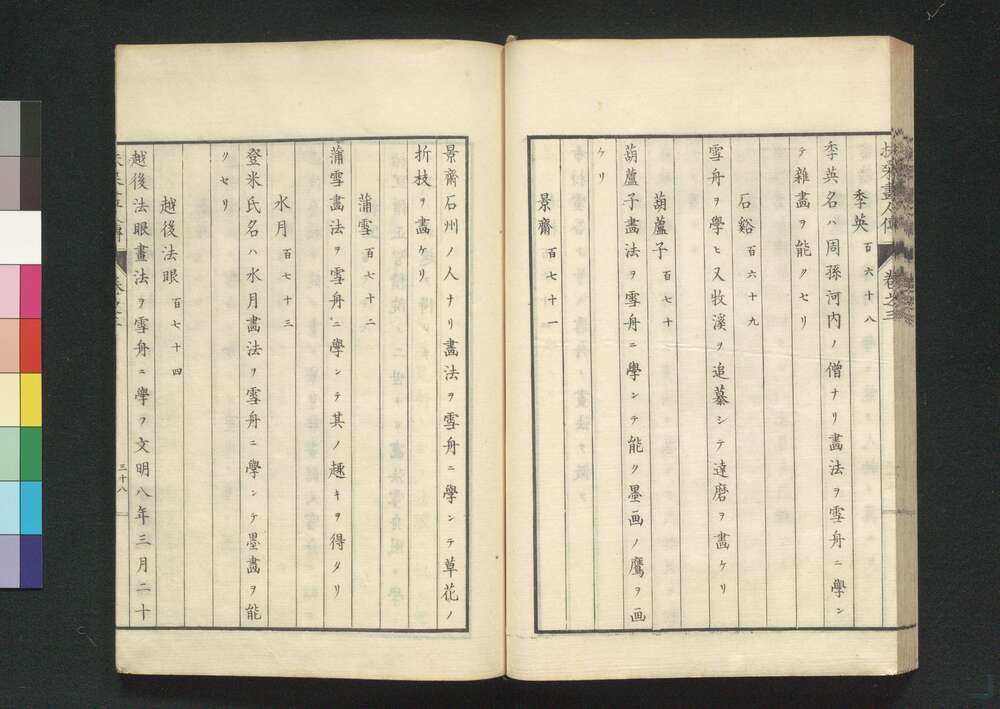 扶桑畫人傳 卷之三
季英 百六十八
季英名ハ周孫河内ノ僧ナリ畵法ヲ雪舟ニ學ン
テ雜畵ヲ能クセリ
石谿 百六十九
雪舟ヲ學ヒ又牧溪ヲ追慕シテ達磨ヲ畵ケリ
葫蘆子 百七十
葫蘆子畵法ヲ雪舟ニ學ンテ能ク墨画ノ鷹ヲ画
ケリ
景齋 百七十一
景齋石州ノ人ナリ畵法ヲ雪舟ニ學ンテ草花ノ
折技ヲ畵ケリ
蒲雪 百七十二
蒲雪畵法ヲ雪舟ニ學ンテ其ノ趣キヲ得タリ
水月 百七十三
登米氏名ハ水月畵法ヲ雪舟ニ學ンテ墨畵ヲ能
クセリ
越後法眼 百七十四
越後法眼畫法ヲ雪舟ニ學フ文明八年三月二十
三十八